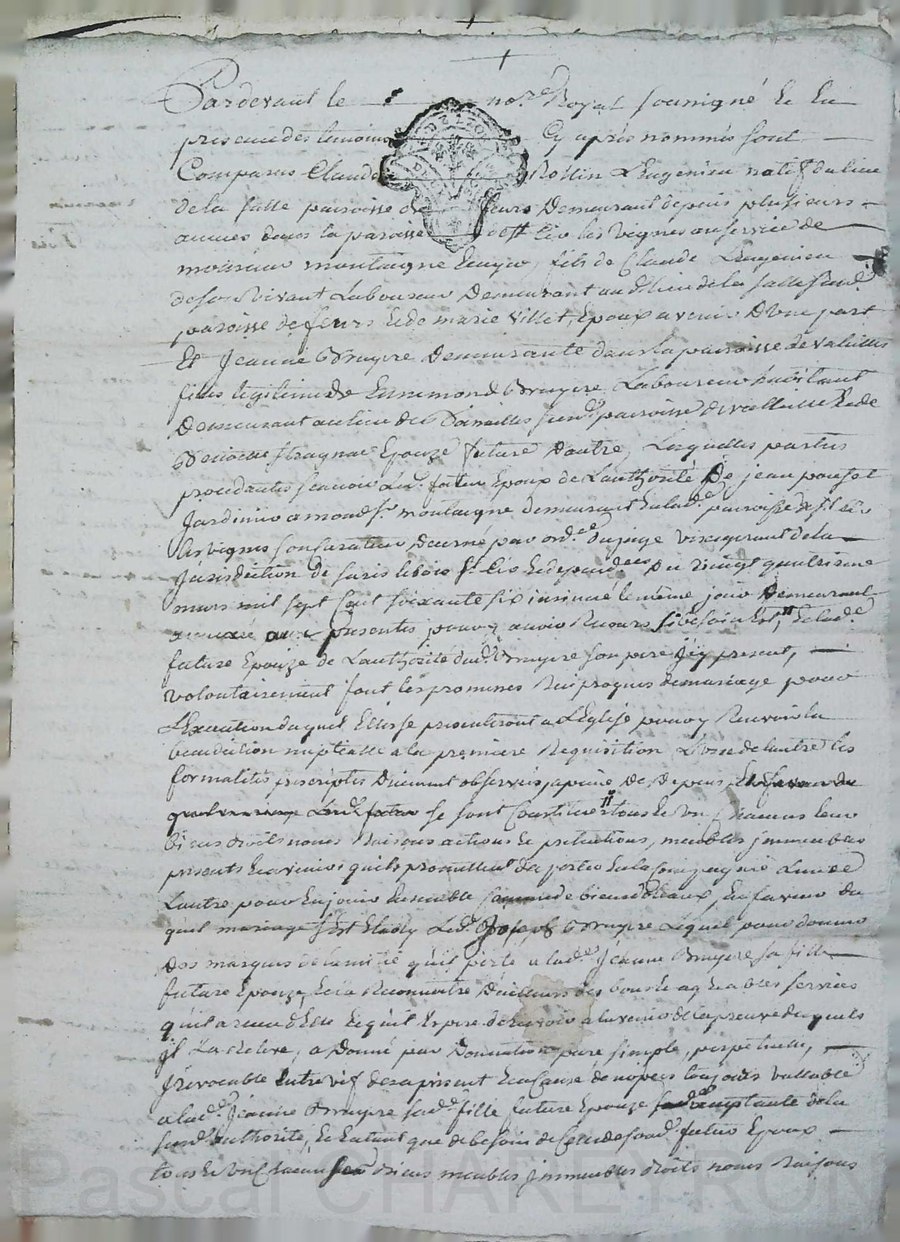 Pardevant le no.re Royal soussigné Et En
presence des temoins Cy après nommés sont
Comparus Claude Rollin Lingenieu natif du lieu
de la salle paroisse de feurs Demeurant depuis plusieurs
années dans la paroisse de st Cir les vignes au service de
monsieur montaigne Ecuyer, fils de Claude Lingenieu
de son Vivant Laboureur Demeurant audit lieu de la salle susd.
paroisse de feurs Et de marie Villet, Epoux avenir D'une part
Et Jeanne Bruyere Demeurante dans la paroisse de valeilles
fille legitime de Bruyere Laboureur habitant
Demeurant au lieu de susd. paroisse de valleille Et de
Epouze future D'autre, Lesquelles parties
procedantes scavoir Led. futur Epoux de L'authorité De jean
Jardinier a mond. sr. montaigne demeurant En lad.e paroisse de st Cir
les vignes son curateur Decerné par ord.ce du juge de la
Jurisdiction de suris le bois st Cir Et dependances Du Vingt quatrieme
mars mil sept Cent soixante six le même jour Demeurant
aux presentes pour y avoir Recours si besoin Est, Et lad.e
future Epouze de L'authorité dud. Bruyere son pere jcy present,
volontairement font les promesses Reciproques de mariage pour
L'Execution duquel Elles se presenteront a L'Eglise pour y Recevoir la
benediction nuptialle a la premiere Requisition L'une de L'autre les
formalités prescriptes Duement observées a peine De Depens
se sont Constitués tous Et Un Chacuns leurs
biens droits noms Raisons actions Et pretentions, meubles jmmeubles
presents Et avenirs qu'ils promettent De porter En la Compagnie L'un de
L'autre pour En jouir Ensemble En faveur du
quel mariage s'Est Etably Led. Joseph Bruyere Lequel pour donner
Des marques de L'amitié qu'il porte a lad.e Jeanne Bruyere sa fille
future Epouze, Et En Reconnoitre D'ailleurs des bons Et agreables services
qu'il a receu d'Elle Et qu'il Espere de Recevoir a L'avenir de la preuve duquels
jl La Releve, a Donné par Donnation pure simple, perpetuelle,
jrrevocable Entre vif des a present Et a Cause de nopces toujours vallable
a lad.e Jeanne Bruyere sad.e fille future Epouze de la
susd. authorité, Et En tant que de besoin de Celle de sond. futur Epoux
tous Et Un Chacun ses biens meubles jmmeubles droits noms Raisons
Pascal CHAREYRON